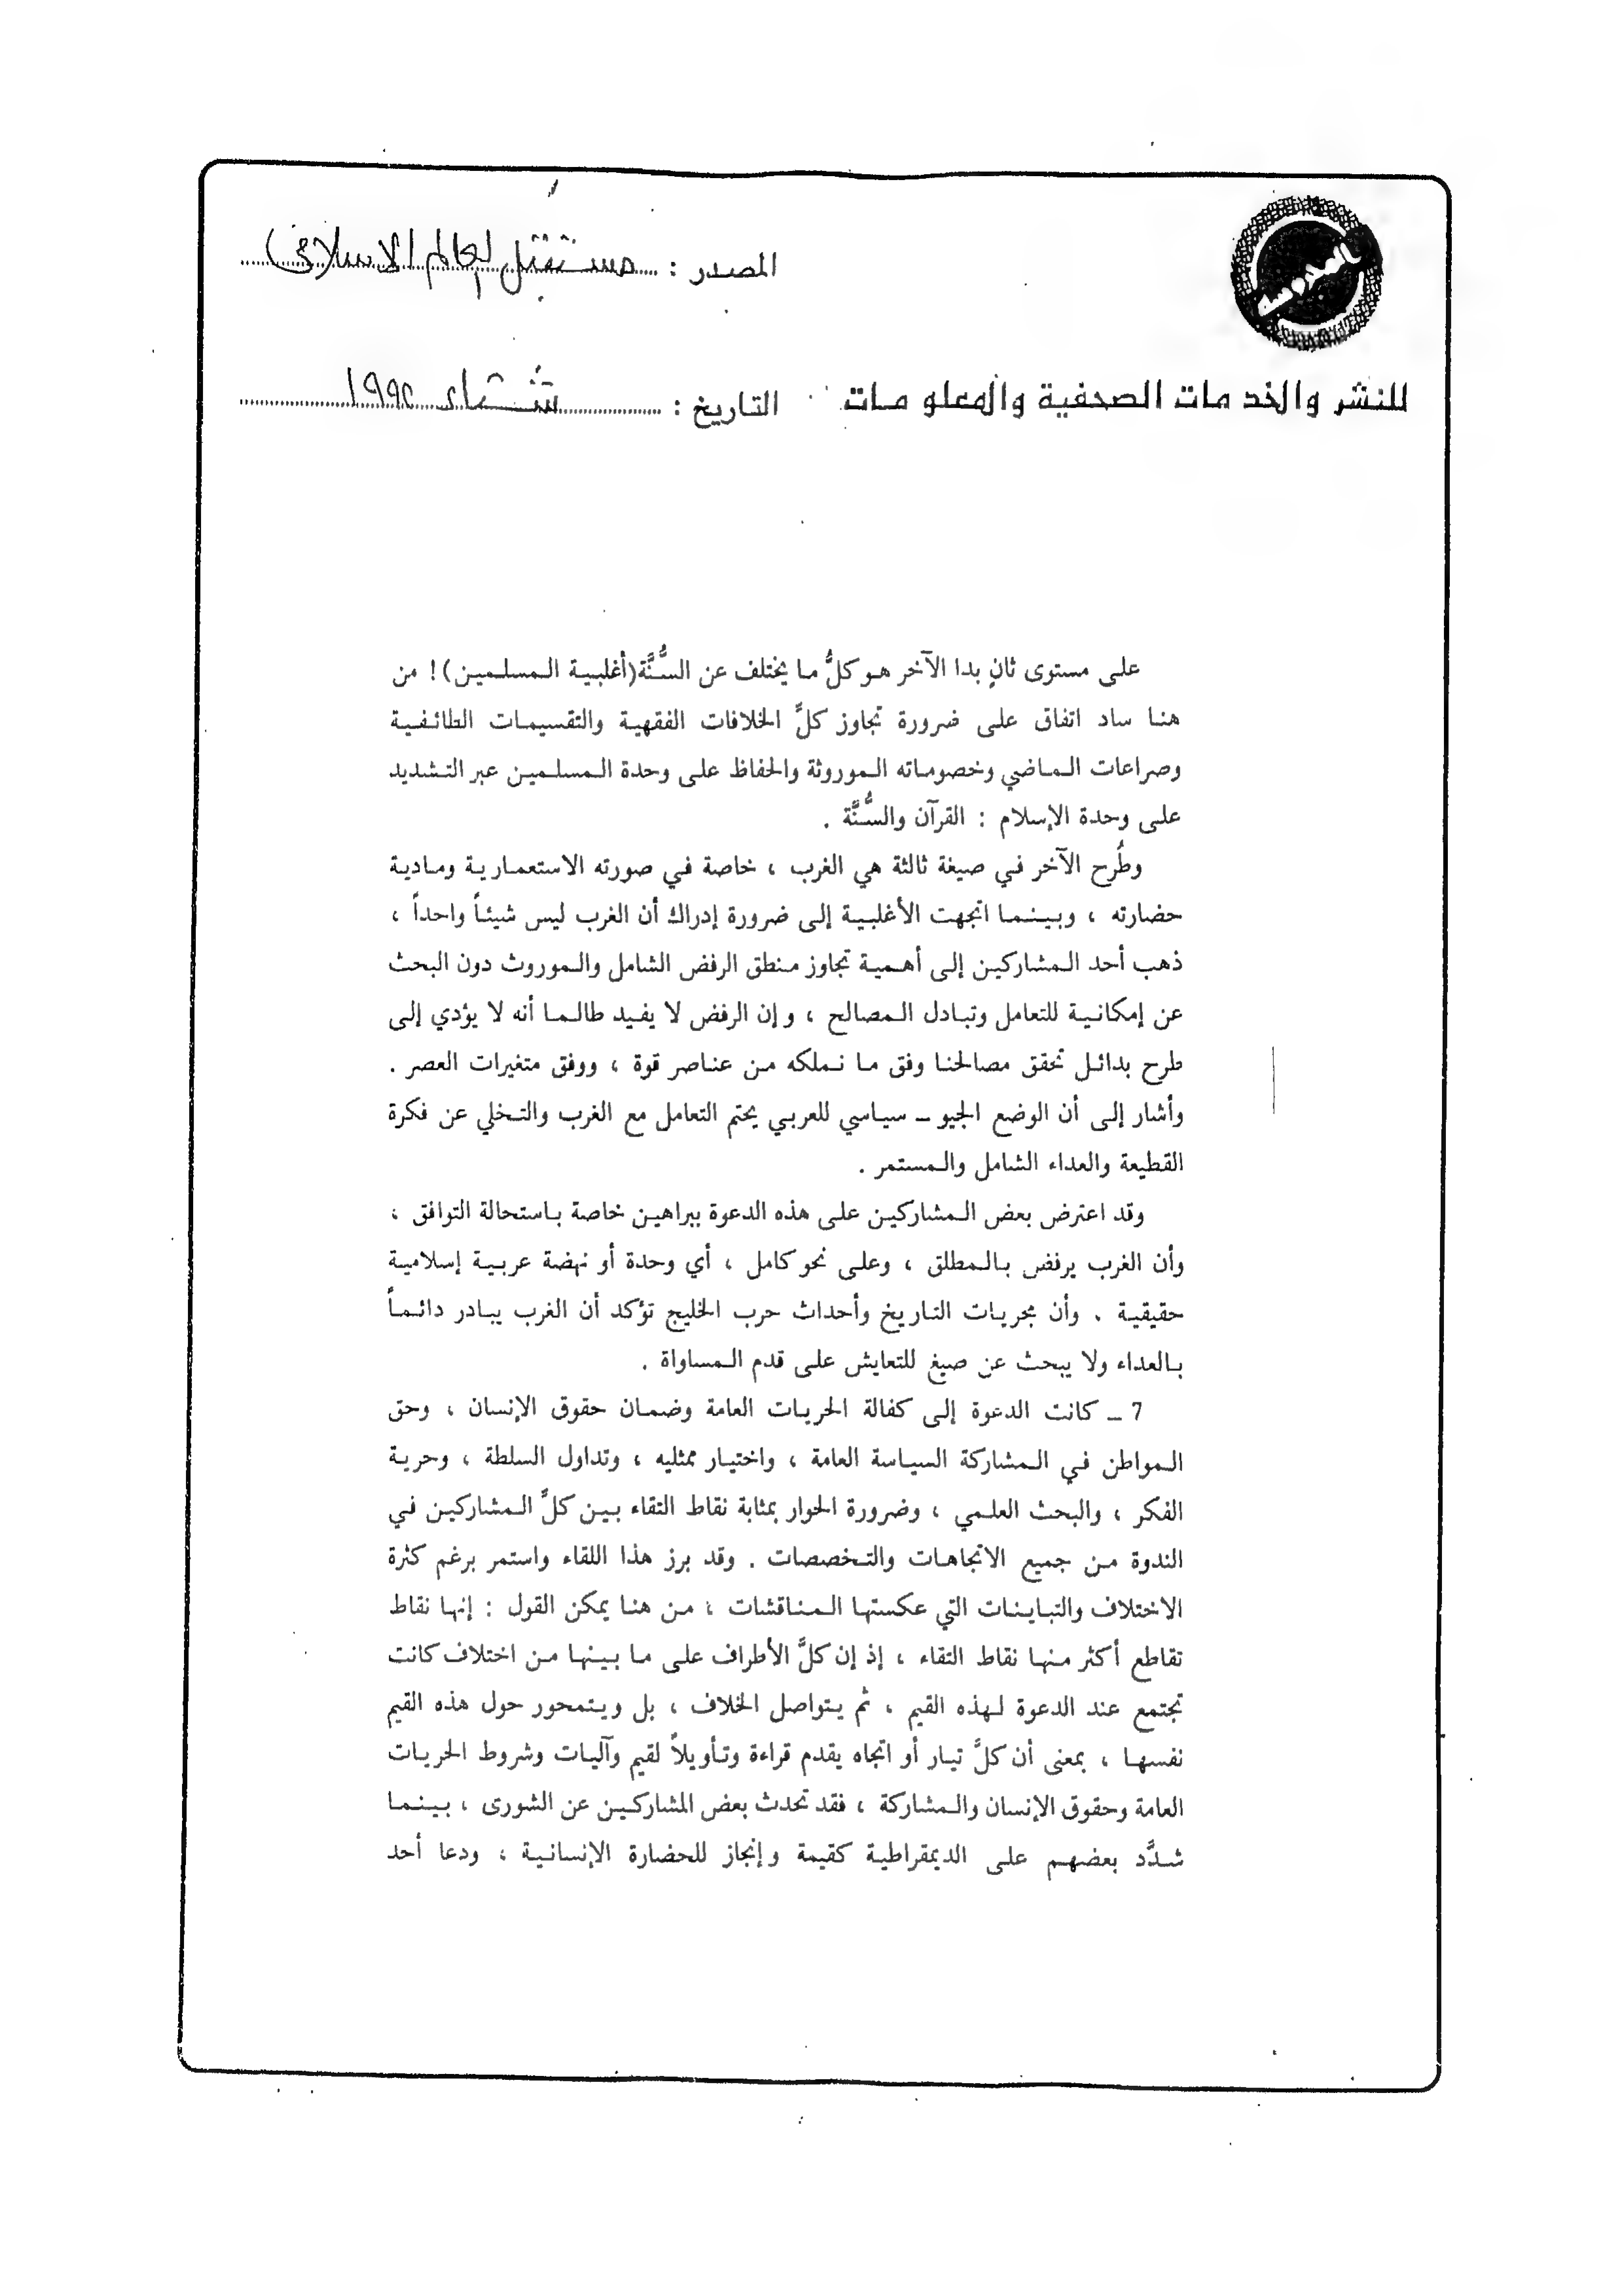 المحروسة
المصدر : مستقبل العالم الاسلامى
للنشر والخدمات الصحفية والمعلومات
التاريخ : شتاء ١٩٩٢
على مستوى ثانٍ بدا الآخر هو كلُّ ما يختلف عن السُّنَّة (أغلبية المسلمين) ! من
هنا ساد اتفاق على ضرورة تجاوز كلَّ الخلافات الفقهية والتقسيمات الطائفية
وصراعات الماضي وخصوماته الموروثة والحفاظ على وحدة المسلمين عبر التشديد
على وحدة الإسلام : القرآن والسُّنَّة .
وطُرح الآخر في صيغة ثالثة هي الغرب ، خاصة في صورته الاستعمارية ومادية
حضارته ، وبينما اتجهت الأغلبية إلى ضرورة إدراك أن الغرب ليس شيئاً واحداً ،
ذهب أحد المشاركين إلى أهمية تجاوز منطق الرفض الشامل والموروث دون البحث
عن إمكانية للتعامل وتبادل المصالح ، وإن الرفض لا يفيد طالما أنه لا يؤدي إلى
طرح بدائل تحقق مصالحنا وفق ما نملكه من عناصر قوة ، ووفق متغيرات العصر .
وأشار إلى أن الوضع الجيو ـ سياسي للعربي يحتم التعامل مع الغرب والتخلي عن فكرة
القطيعة والعداء الشامل والمستمر .
وقد اعترض بعض المشاركين على هذه الدعوة ببراهين خاصة باستحالة التوافق ،
وأن الغرب يرفض بالمطلق ، وعلى نحو كامل ، أي وحدة أو نهضة عربية إسلامية
حقيقية . وأن مجريات التاريخ وأحداث حرب الخليج تؤكد أن الغرب يبادر دائماً
بالعداء ولا يبحث عن صيغ للتعايش على قدم المساواة .
7 ـ كانت الدعوة إلى كفالة الحريات العامة وضمان حقوق الإنسان ، وحق
المواطن في المشاركة السياسة العامة ، واختيار ممثليه ، وتداول السلطة ، وحرية
الفكر ، والبحث العلمي ، وضرورة الحوار بمثابة نقاط التقاء بين كلَّ المشاركين في
الندوة من جميع الاتجاهات والتخصصات . وقد برز هذا اللقاء واستمر برغم كثرة
الاختلاف والتباينات التي عكستها المناقشات ، من هنا يمكن القول : إنها نقاط
تقاطع أكثر منها نقاط التقاء ، إذ إن كلَّ الأطراف على ما بينها من اختلاف كانت
تجتمع عند الدعوة لهذه القيم ، ثم يتواصل الخلاف ، بل ويتمحور حول هذه القيم
نفسها ، بمعنى أن كلَّ تيار أو اتجاه يقدم قراءة وتأويلاً لقيم وآليات وشروط الحريات
العامة وحقوق الإنسان والمشاركة ، فقد تحدث بعض المشاركين عن الشورى ، بينما
شدَّد بعضهم على الديمقراطية كقيمة وإنجاز للحضارة الإنسانية ، ودعا أحد